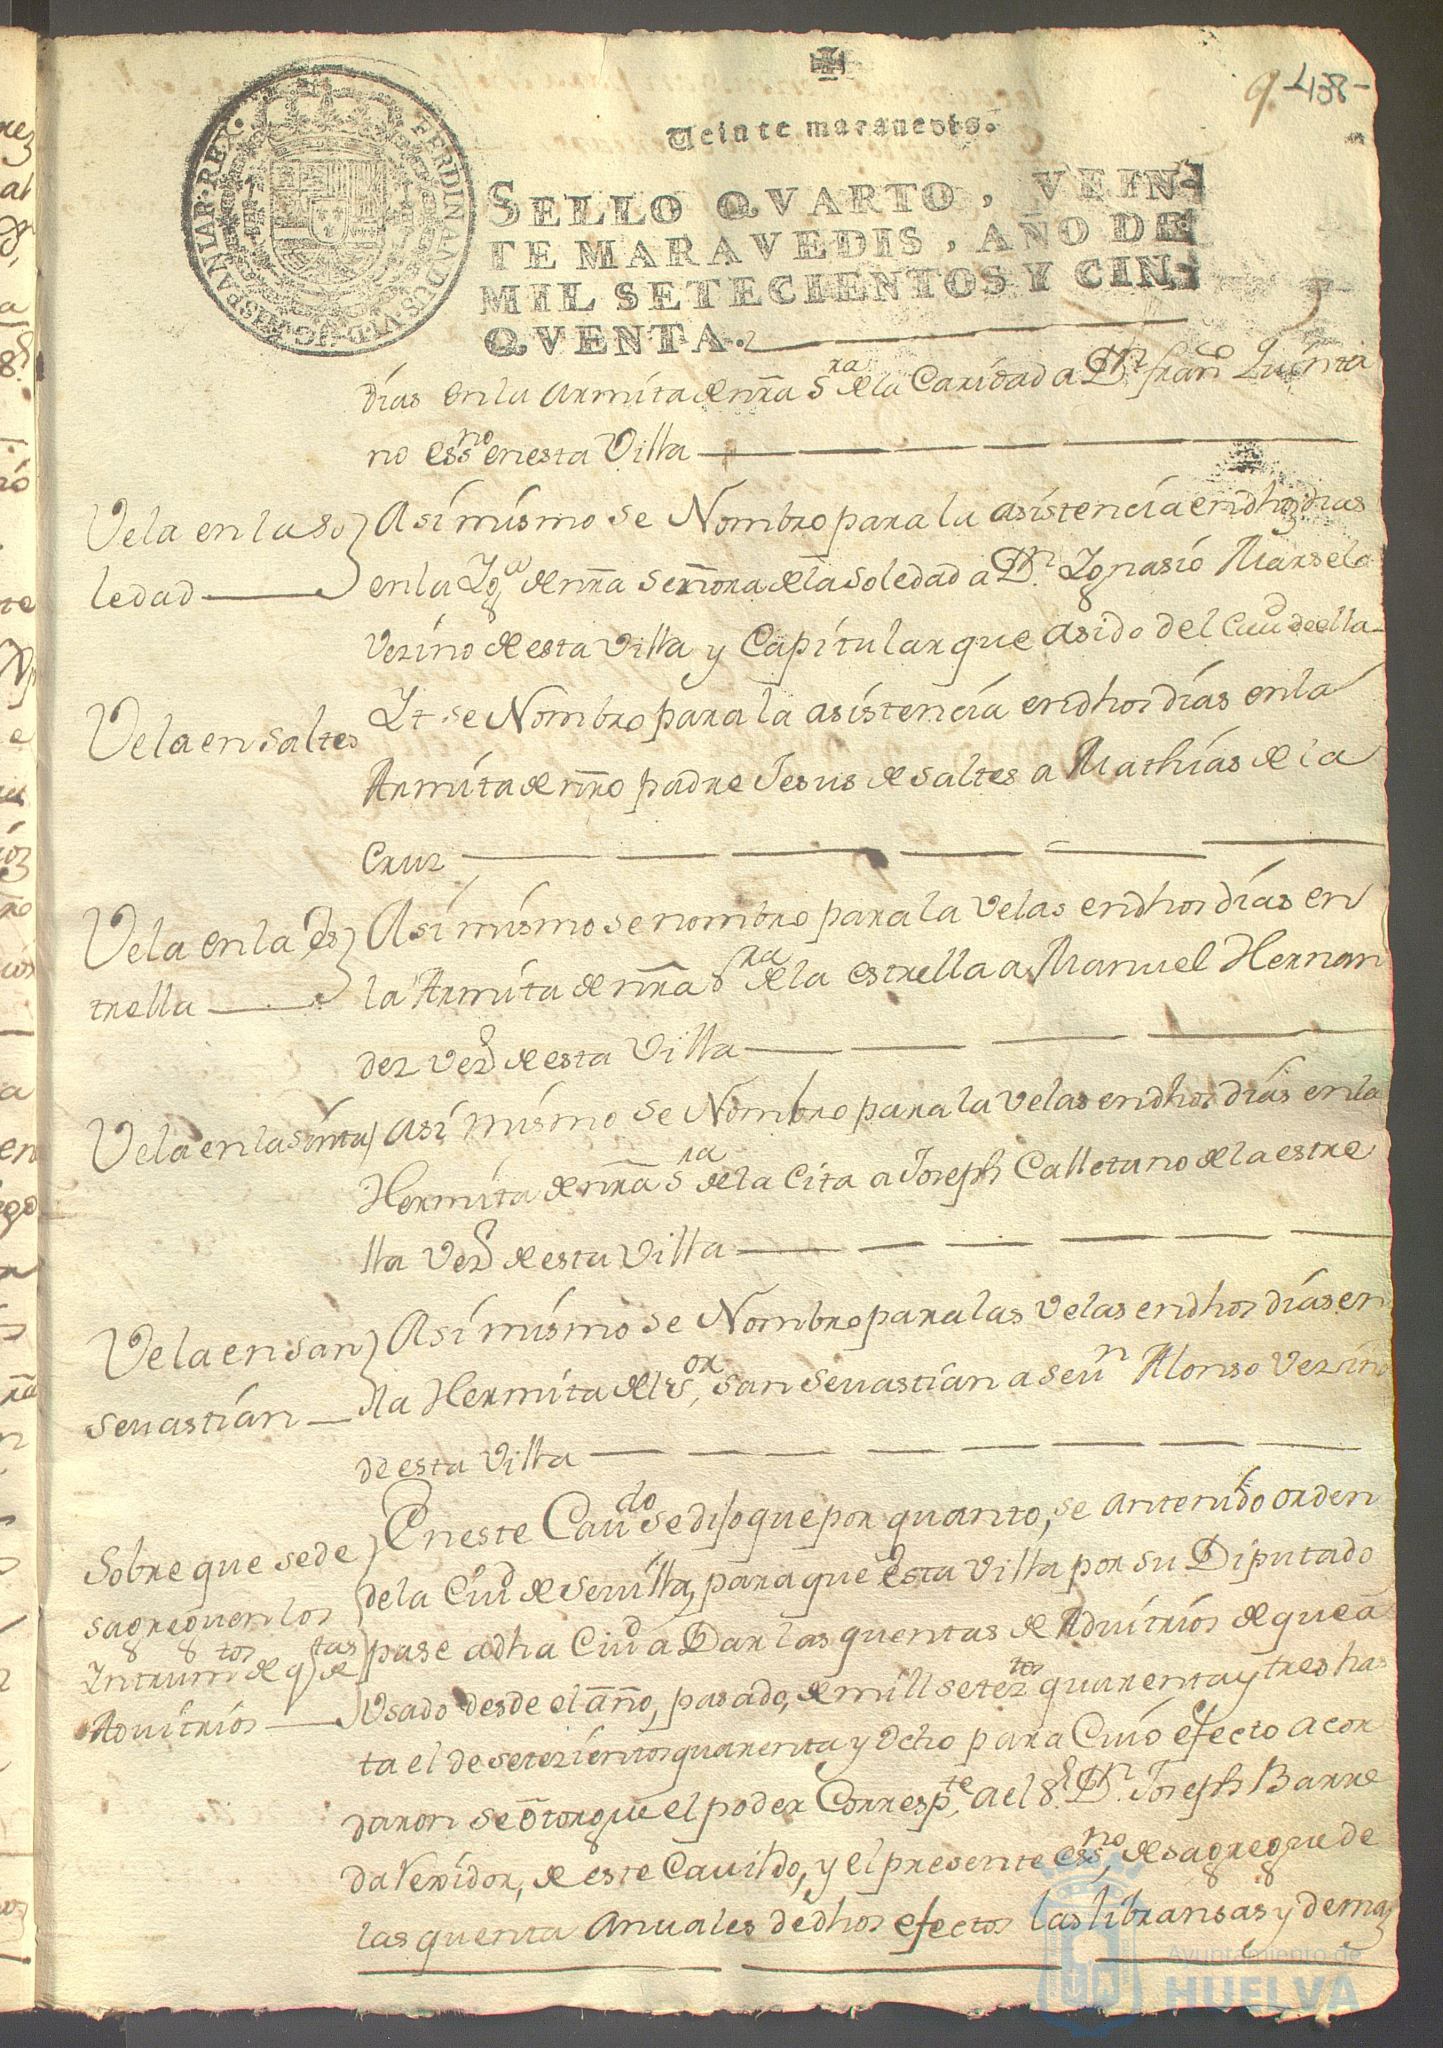 9 438-
Veinte maravedis.
SELLO QVARTO, VEIN-
TE MARAVEDIS, AÑO DE
MIL SETECIENTOS Y CIN-
QVENTA.
FERDINANDUS.VI.D.G.HISPANIAR.REX.
días en la Armita de nrā Sra de la Caridad a Dn franco Quinta
no essno en esta Villa
Vela en la so
ledad
Asi mismo se Nombro para la asistencia en dhos dias
en la Iga de nrā señora de la Soledad a Dn Ignasio Marselo
Vezino de esta Villa y Capitular que a sido del Cavdo de ella
Vela en saltes
It se Nombro para la asistencia en dhos días en la
Armita de nrō padre Jesus de saltes a Mathias de la
Cruz
Vela en la es
trella
Asi mismo se nombro para la velas en dhos días en
la Armita de nrā sra de la estrella a Manuel Hernan
dez Vezo de esta Villa
Vela en la sinta
Asi mismo se Nombro para la velas en dhos días en la
Hermita de nrā sra de la Cita a Joseph Calletano de la estre
lla Vezo de esta Villa
Vela en san
sevastian
Asi mismo se Nombro para las velas en dhos días en
la Hermita del sor san sevastian a sevn Alonso Vezino
de esta Villa
Sobre que se de
sagreguen los
Intrumtos de qtas de
Advitrios
En este Cavdo se dijo que por quanto, se antenido orden
de la Ciud de sevilla, para que esta Villa por su Diputado
pase a dha Ciud a Dar las quentas de Advitrios de que a
Usado desde el año, pasado, de mill seteztos quarenta y tres has
ta el de setezientos quarenta y Ocho para Cuio efecto acor
daron se otorgue el poder Correspte a el Sr Dn Joseph Barre
da Rexidor, de este Cavildo, y el presente essno, desagregue de
las quenta anuales de dhos efectos las libransas y demas
Ayuntamiento de
HUELVA